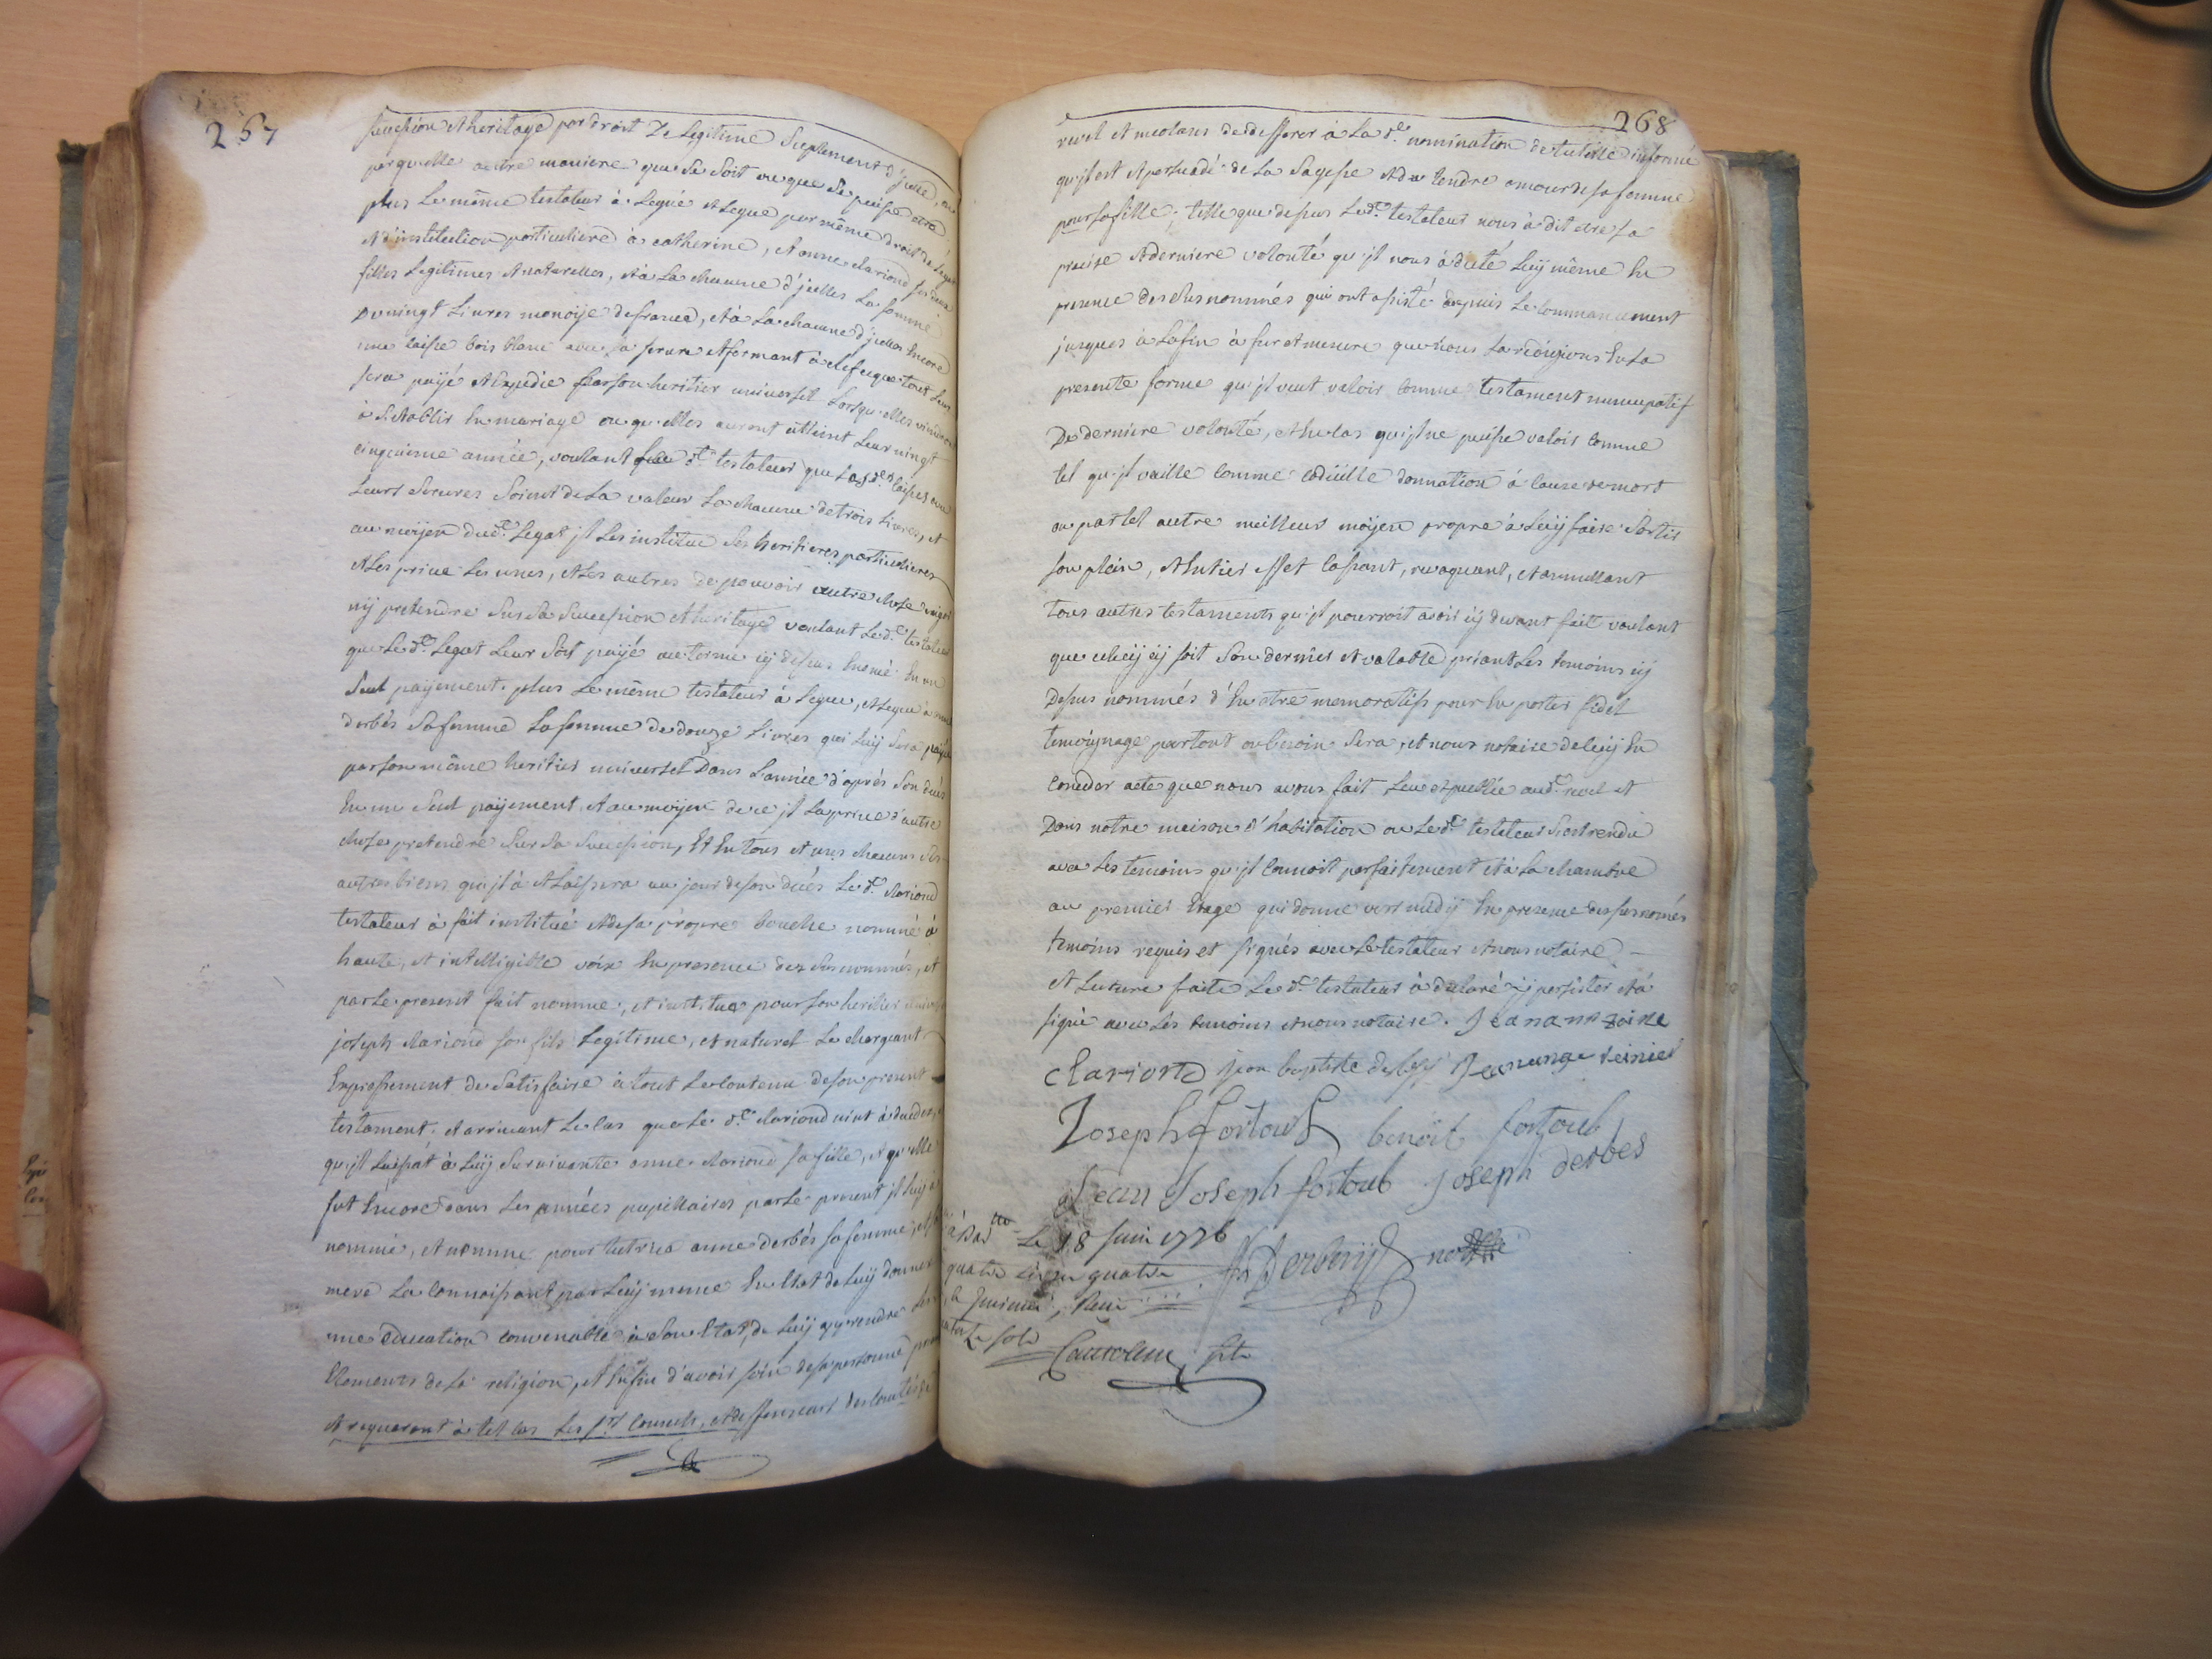 267
succession et heritage par droit de Legitime Suplement d'jcelle, ou
par quelle autre maniere que Se Soit ou que Se puisse etre
plus Le même testateur à Legué et Legue par même droit de Legat
et d'institution particuliere à catherine, et anne clariond ses deux
filles Legitimes et naturelles, et à La chacune d'jcelles La Somme
De vingt Livres monoije de france, et à La chacune d'jcelles Encore
une caisse bois blanc avec sa serrure et fermant à clef ce que tout Leur
sera payé et Expedié par son heritier universel Lorsqu'elles viendront
à S'etablir En mariage ou qu'elles auront atteint Leur vingt
cinquieme année, voulant Led.t testateur que Lesd.es caisses avec
Leurs Serrures Soient de La valeur La chacune de trois Livres, et
au moijen dud.t Legat jl Les institue Ses heritieres particulieres
et Les prive Les unes, et Les autres de pouvoir autre chose
nij pretendre Sur Sa Succession et heritage voulant Led.t testateur
que Led.t Legat Leur Soit paijé au terme cij dessus Enoncé En un
Seul paijement. plus Le même testateur à Legue, et Legue à anne
derbés Sa femme La somme de douze Livres qui Luij Sera paijée
par son même heritier universel Dans L'année d'aprés Son decés
En un Seul paijement et au moijen de ce jl La prive d'autre
chose pretendre Sur Sa Succession, Et En tous et uns chacuns Ses
autres biens qu'jl à et Laissera au jour de son decés Le d.t clariond
testateur à fait institué et de sa propre bouche nommé à
haute, et intelligible voix En presence des Susnommés, et
par Le present fait nomme, et institue pour son heritier universel
joseph clariond son fils Legitime, et naturel Le chargeant
Expressement de Satisfaire à tout Le Contenu de son present
testament. et arrivant Le Cas que Le d.t clariond vint à deceder,
qu'jl Laissat à Luij Survivante anne clariond sa fille, et qu'elle
fut Encore dans Les années pupillaires par Le present jl Luij à
nommé, et nomme pour tutrice anne derbés sa femme, et sa
mere La connoissant par Luij meme En Etat de Luij donner
une Education convenable à Son Etat, de Luij apprendre Les
Elements de La religion, et Enfin d'avoir soin de sa personne
et requerant à tel cas Les S.rs Consuls, et deffenseurs des
268
revel et meolans de defferer à La d.e nomination de tutrice informé
qu'jl est et persuadé de La Sagesse et du tendre amour de sa femme
pour sa fille; telle que dessus Led.t testateur nous à dit etre sa
precise et derniere volonté qu'jl nous à dicté Luij même En
presence des susnommés qui ont assisté depuis Le commancement
jusques à La fin à fur et mesure que nous La redigions En La
presente forme qu'jl veut valoir comme testament nuncupatif
De derniere volonté, et En Cas qu'jl ne puisse valoir comme
tel qu'jl vaille comme codicille donnation à cause de mort
ou par tel autre meilleur moijen propre à Luij faire Sortir
son plein, et Entier effet Cassant, revoquant, et annullant
tous autres testaments qu'jl pourroit avoir cij devant fait voulant
que celuij cij soit Son dernier et valable priant Les temoins cij
Dessus nommés d'En etre memoratifs pour En porter fidel
temoignage partout ou besoin Sera, et nous notaire de Luij En
Conceder acte que nous avons fait Leu et publié aud.t revel et
Dans notre maison d'habitation ou Led.t testateur S'est rendu
avec Les temoins qu'jl Connoit parfaitement et à La chambre
au premier Etage qui donne vers midij En presence des susnomés
temoins requis et signés avec Le testateur et nous notaire –
et Lecture faite Le d.t testateur à declaré ij persister et à
signé avec Les temoins et nous notaire. Jean antoine
clariond jean baptiste Jean ange reinier
Joseph fortoul benoit fortoul
Jean Joseph fortoul joseph derbes
Le 18 juin 1776 Derbezij no.re
quatre Livres quatre
sols